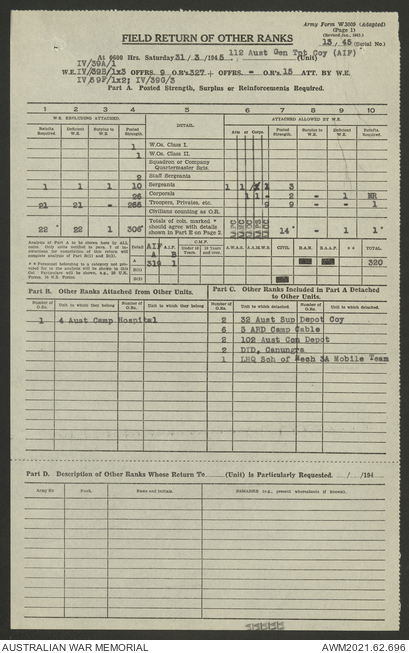 Army Form W3009 (Adapted)
(Page 1)
FIELD RETURN OF OTHER RANKS
13 / 45 (Serial No.)
112 Aust Gen Tpt Coy (AIF)
At 0600 Hrs. Saturday 31/3/1945 (Unit)
IV/39A/1
W.E. IV/39B/1x3 OFFRS. 9 O.R's 327 + OFFRS. - O.R's 15 ATT. BY W.E.
IV/39F/1x2; IV/39G/3
Part A. Posted Strength, Surplus or Reinforcements Required.
1 2 3 4 5 6 7 8 9 10
W.E. EXCLUDING ATTACHED. DETAIL ATTACHED ALLOWED BY W.E.
Reinfts Required. Deficient W.E. Surplus to W.E. Posted Strength. Arm or Corps. Posted Strength. Deficient W.E. Surplus to W.E. Reinfts Required.
1 W.Os. Class I.
1 W.Os. Class II.
Squadron or Company Quartermaster Sgts.
2 Staff Sergeants
1 1 1 10 Sergeants 1 1 1 3
26 Corporals 1 1 2 - 1 NR
21 21 - 266 Troopers, Privates, etc. 9 9 - - 1
Civilians counting as O.R.
22 * 22 1 306 Totals of coln. marked * should agree with details shown in Part E on Page 2. 14 - 1 1 *
Detail AIF A.I.F. C.M.F. A.W.A.S. A.A.M.W.S. CIVIL ** TOTAL
A B Under 19 Years.
A 319 1 320
B(i)
B(ii)
Part B. Other Ranks Attached from Other Units.
Part C. Other Ranks Included in Part A Detached to Other Units.
Number of O.Rs. Unit to which they belong Number of O.Rs. Unit to which they belong Number of O.Rs. Unit to which detached Number of O.Rs. Unit to which detached
1 4 Aust Camp Hospital 2 32 Aust Sup Depot Coy
6 5 ARD Camp Cable
2 102 Aust Con Depot
2 DID, Canungra
1 LHQ Sch of Mech 3A Mobile Team
Part D. Description of Other Ranks Whose Return To (Unit) is Particularly Requested. / /194
Army No Rank. Name and Initials. REMARKS (e.g., present whereabouts if known).
AUSTRALIAN WAR MEMORIAL AWM2021.62.696